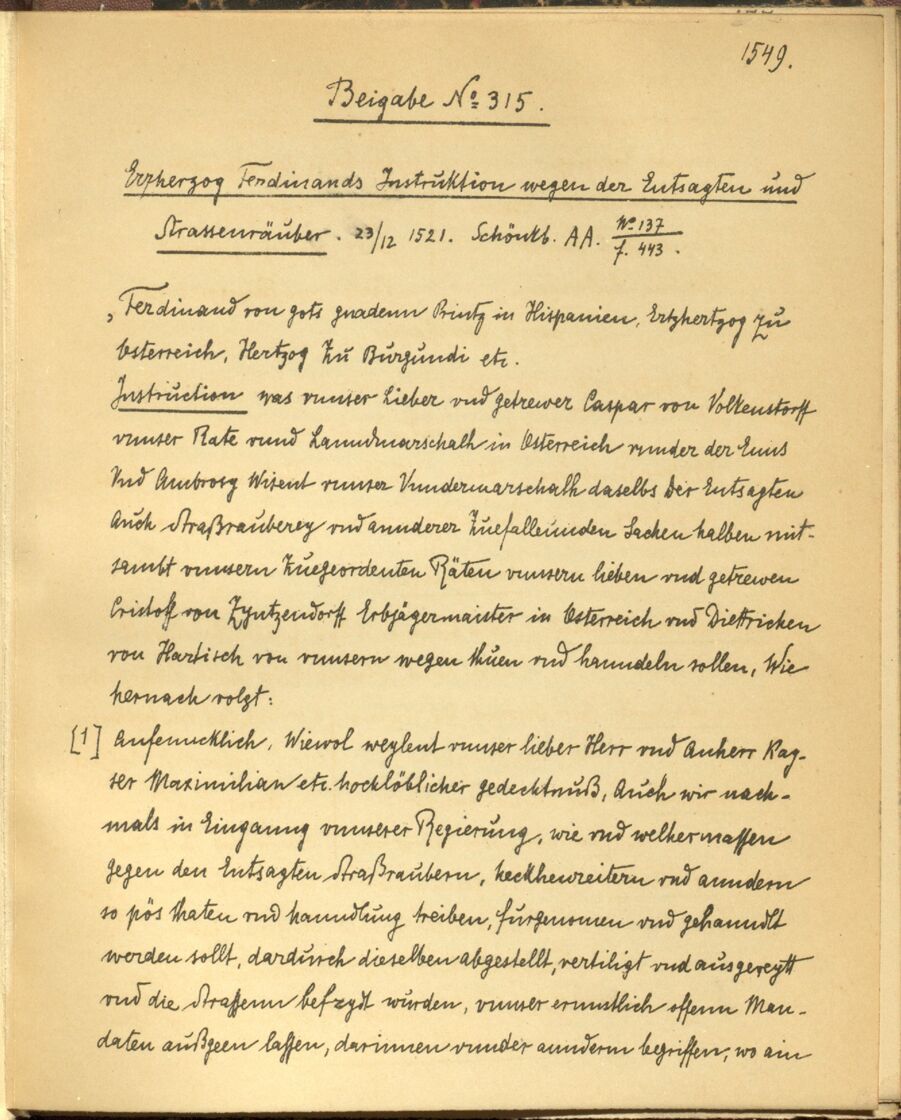 1549.
Beigabe No 315.
Erzherzog Ferdinands Instruktion wegen der Entsagten und
Strassenräuber. 23/12 1521. Schönkb. AA. No 137
f. 443.
„Ferdinand von gots gnadenn Printz in Hispanien, Ertzhertzog zu
Osterreich, Hertzog zu Burgundi etc.
Instruction was vnnser lieber vnd getrewer Caspar von Volkenstorff
vnnser Rate vnnd Lanndmarschalh in Osterreich vnnder der Enns
Vnd Ambrosy Wisent vnnser Vnndermarschalh daselbs der Entsagten
Auch Straßrauberey vnd annderer Zuefallennden Sachen halben mit-
sambt vnnsern Zuegeordenten Räten vnnsern lieben vnd getrewen
Cristoff von Zyntzendorff Erbjägermaister in Osterreich vnd Diettrichen
von Hartisch von vnnsern wegen thuen vnd hanndeln sollen, Wie
hernach volgt:
[1] Anfenncklich, Wiewol weylent vnnser lieber Herr vnd Anherr Kay-
ser Maximilian etc. hochlöblicher gedechtnuß, Auch wir nach-
mals in Einganng vnnserer Regierung, wie vnd welhermassen
gegen den Entsagten Straßraubern, heckhenreitern vnd anndern
so pös thaten vnd hanndlung treiben, furgenomen vnd gehanndlt
werden sollt, dardurch dieselben abgestellt, vertiligt vnd ausgereytt
vnd die Strassenn befrydt wurden, vnnser ernnstlich offenn Man-
daten außgeen lassen, darinnen vnnder annderm begriffen, wo ain